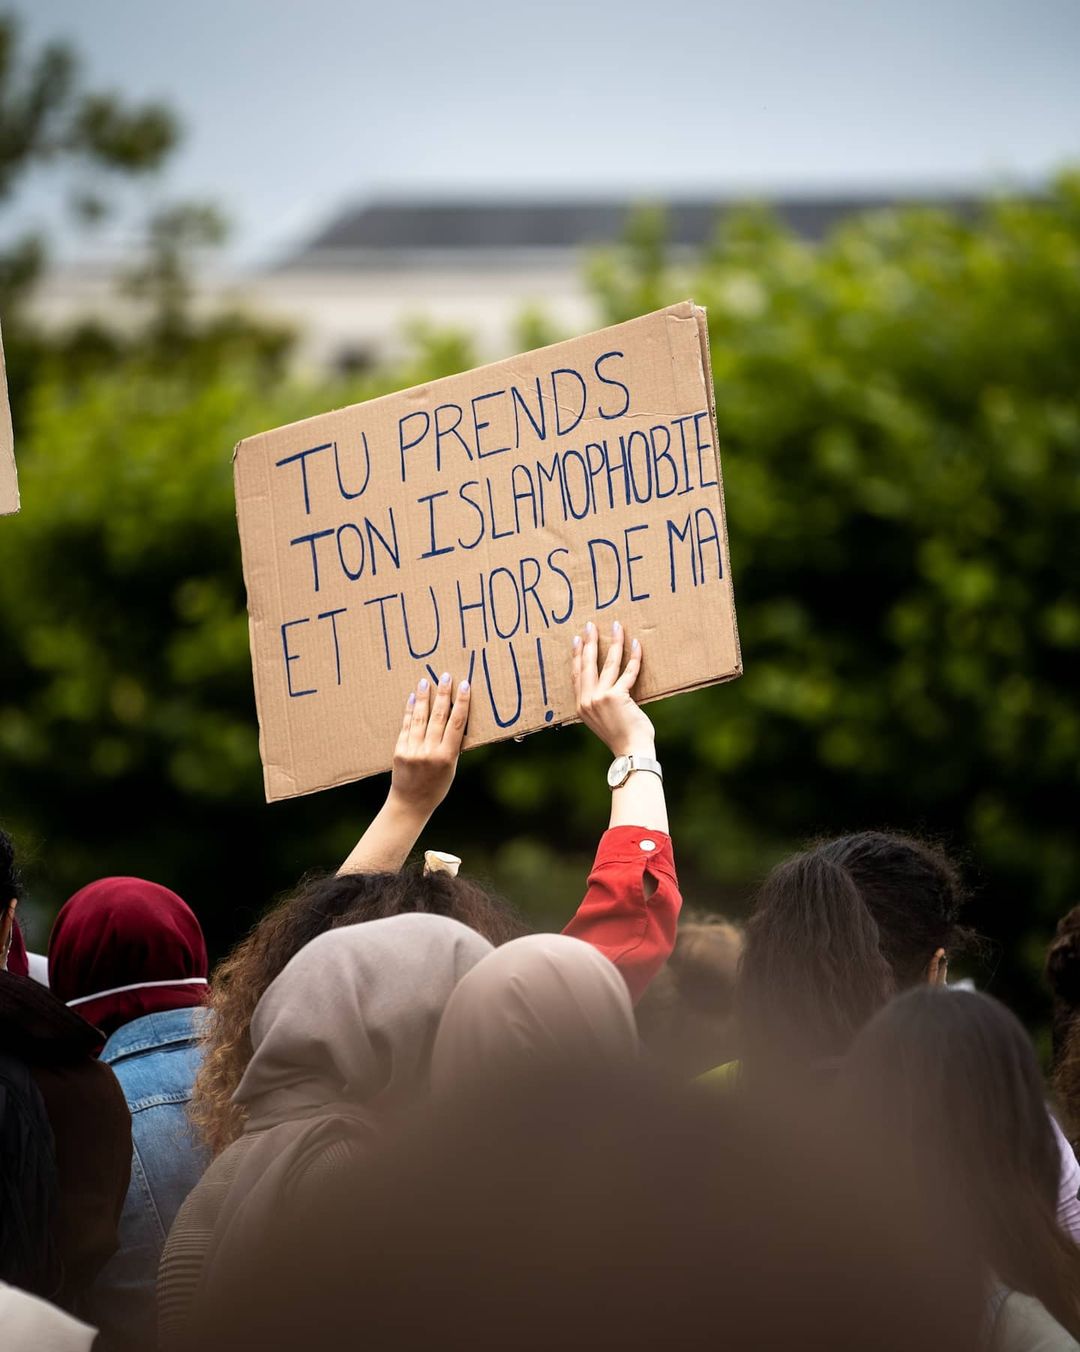 TU PRENDS
TON ISLAMOPHOBIE
ET TU HORS DE MA
VU!